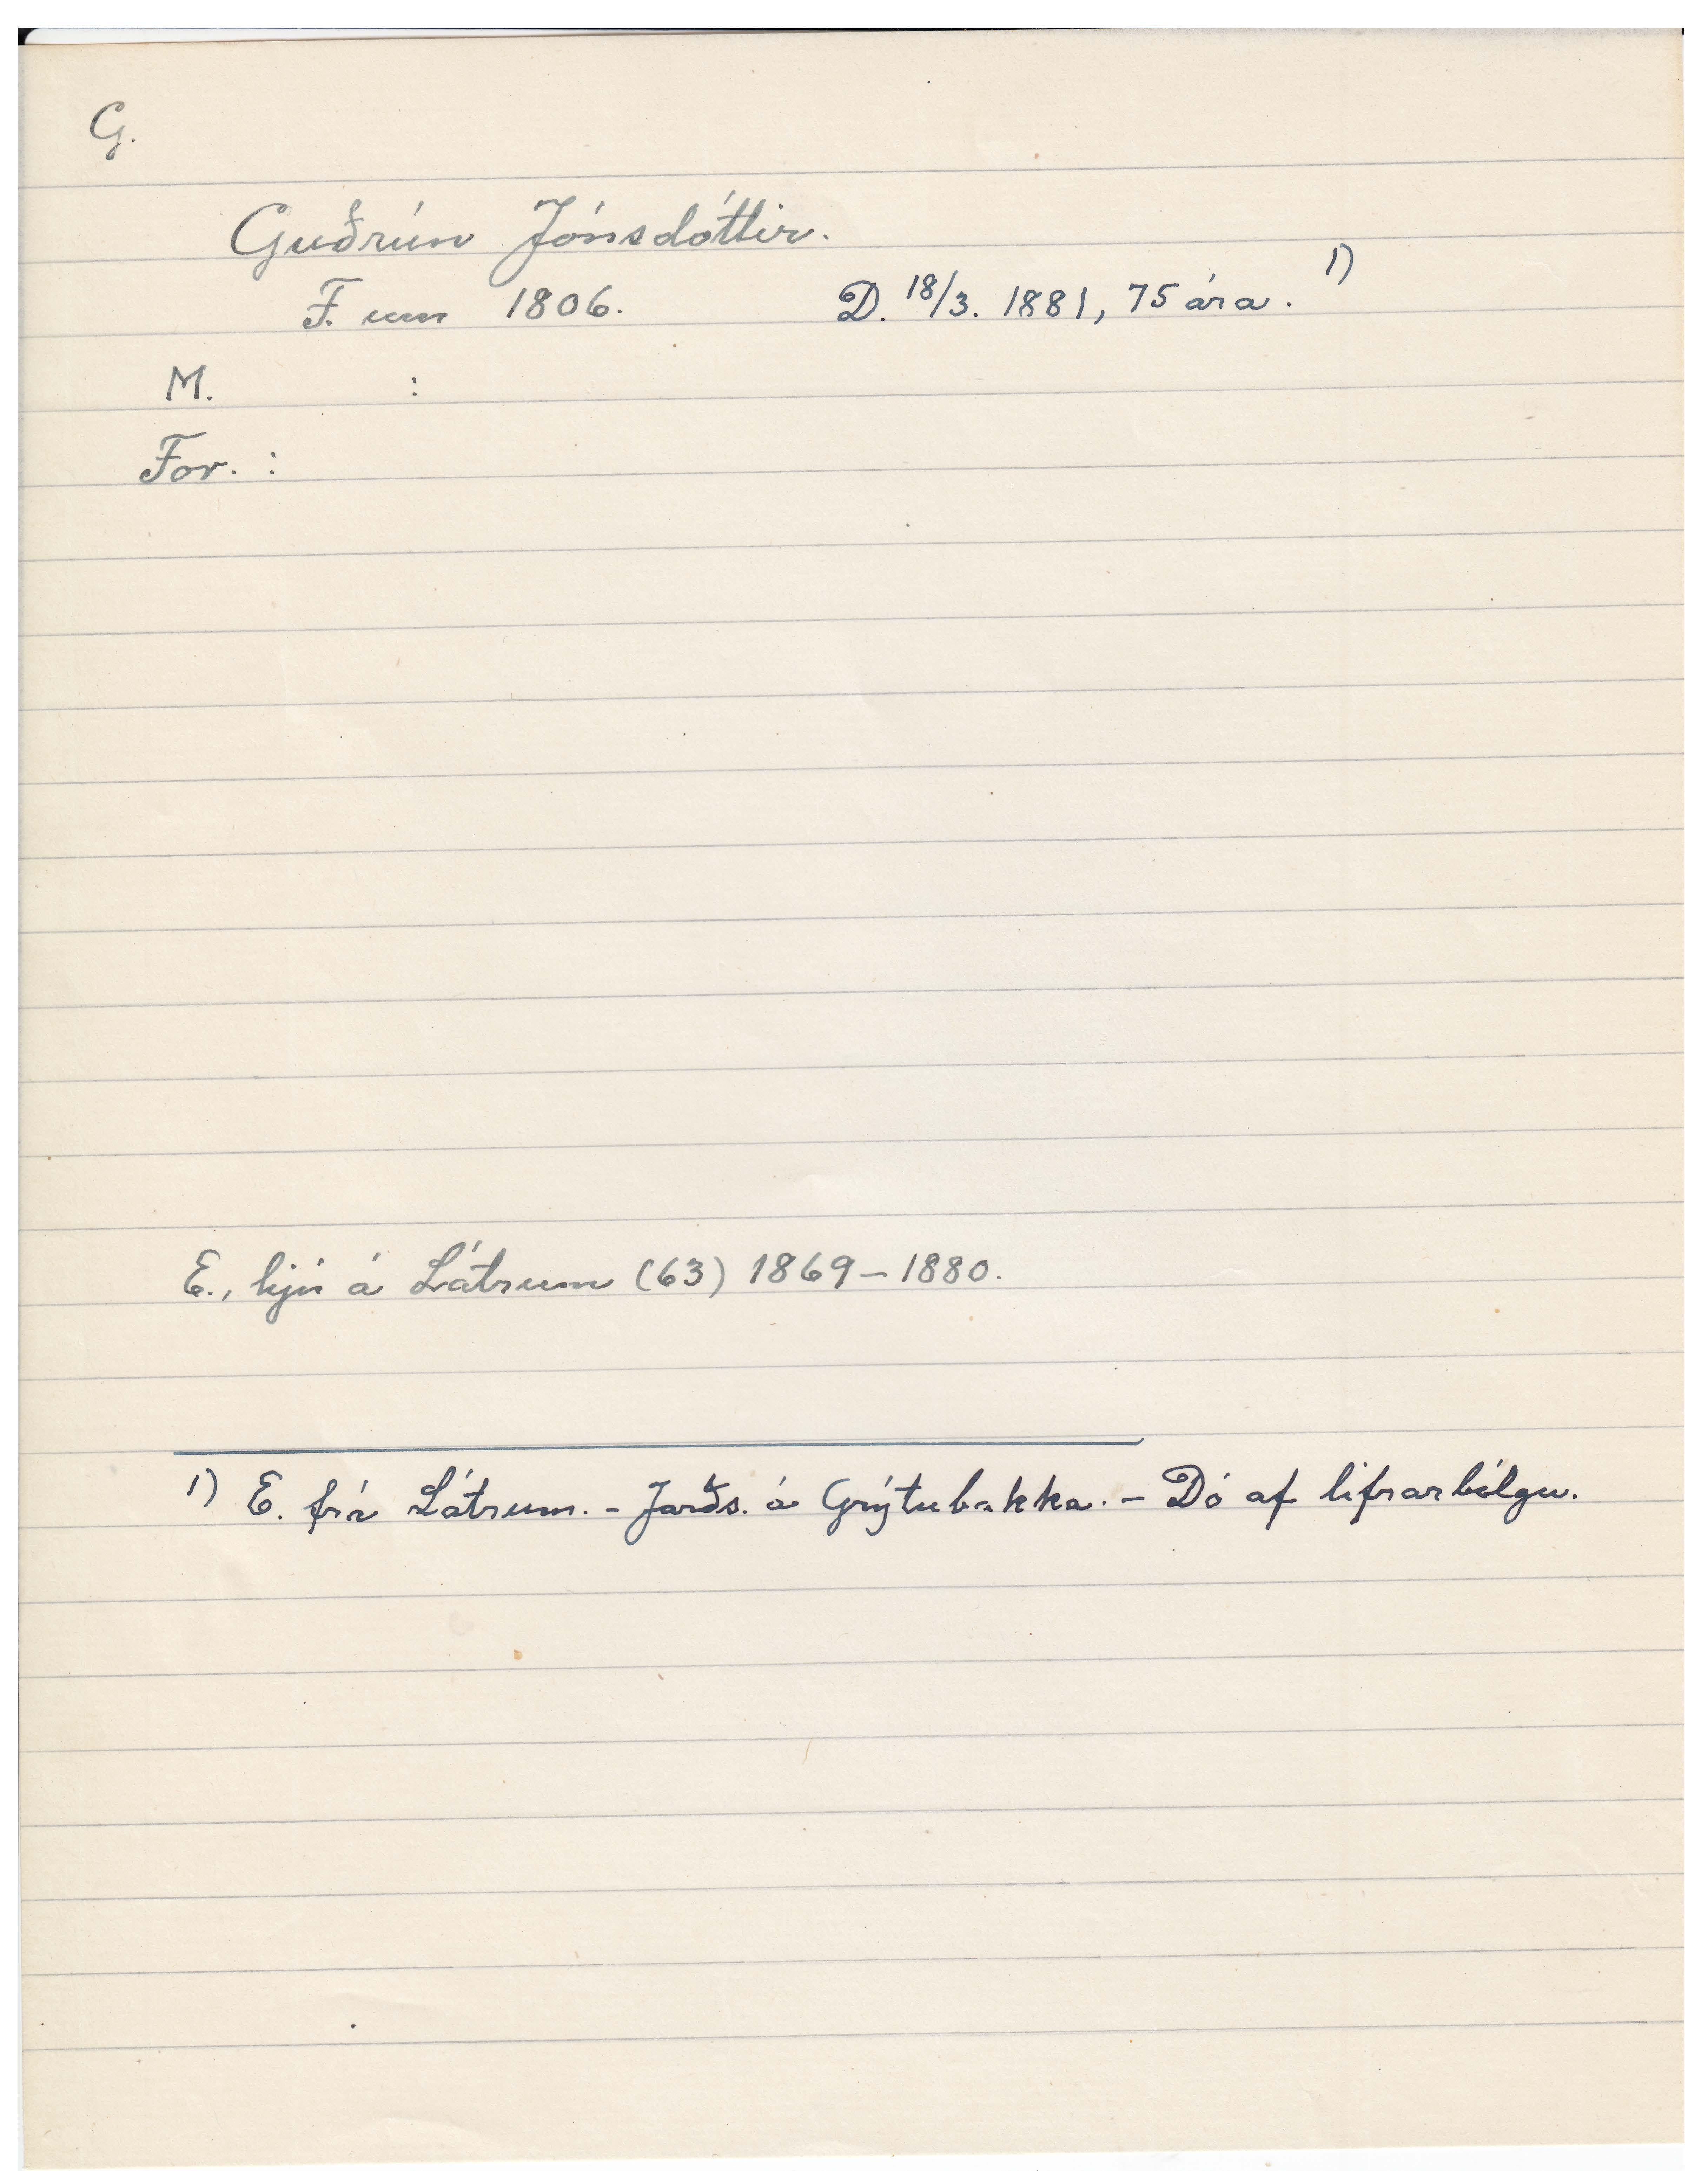 G.
Guðrún Jónsdóttir.
F. um 1806. D. 18/3. 1881, 75 ára. 1)
M. :
For. :
E., hjú á Látrum (63) 1869-1880.
1) E. frá Látrum. - Jarðs. á Grýtubakka. - Dó af lifrarbólgu.